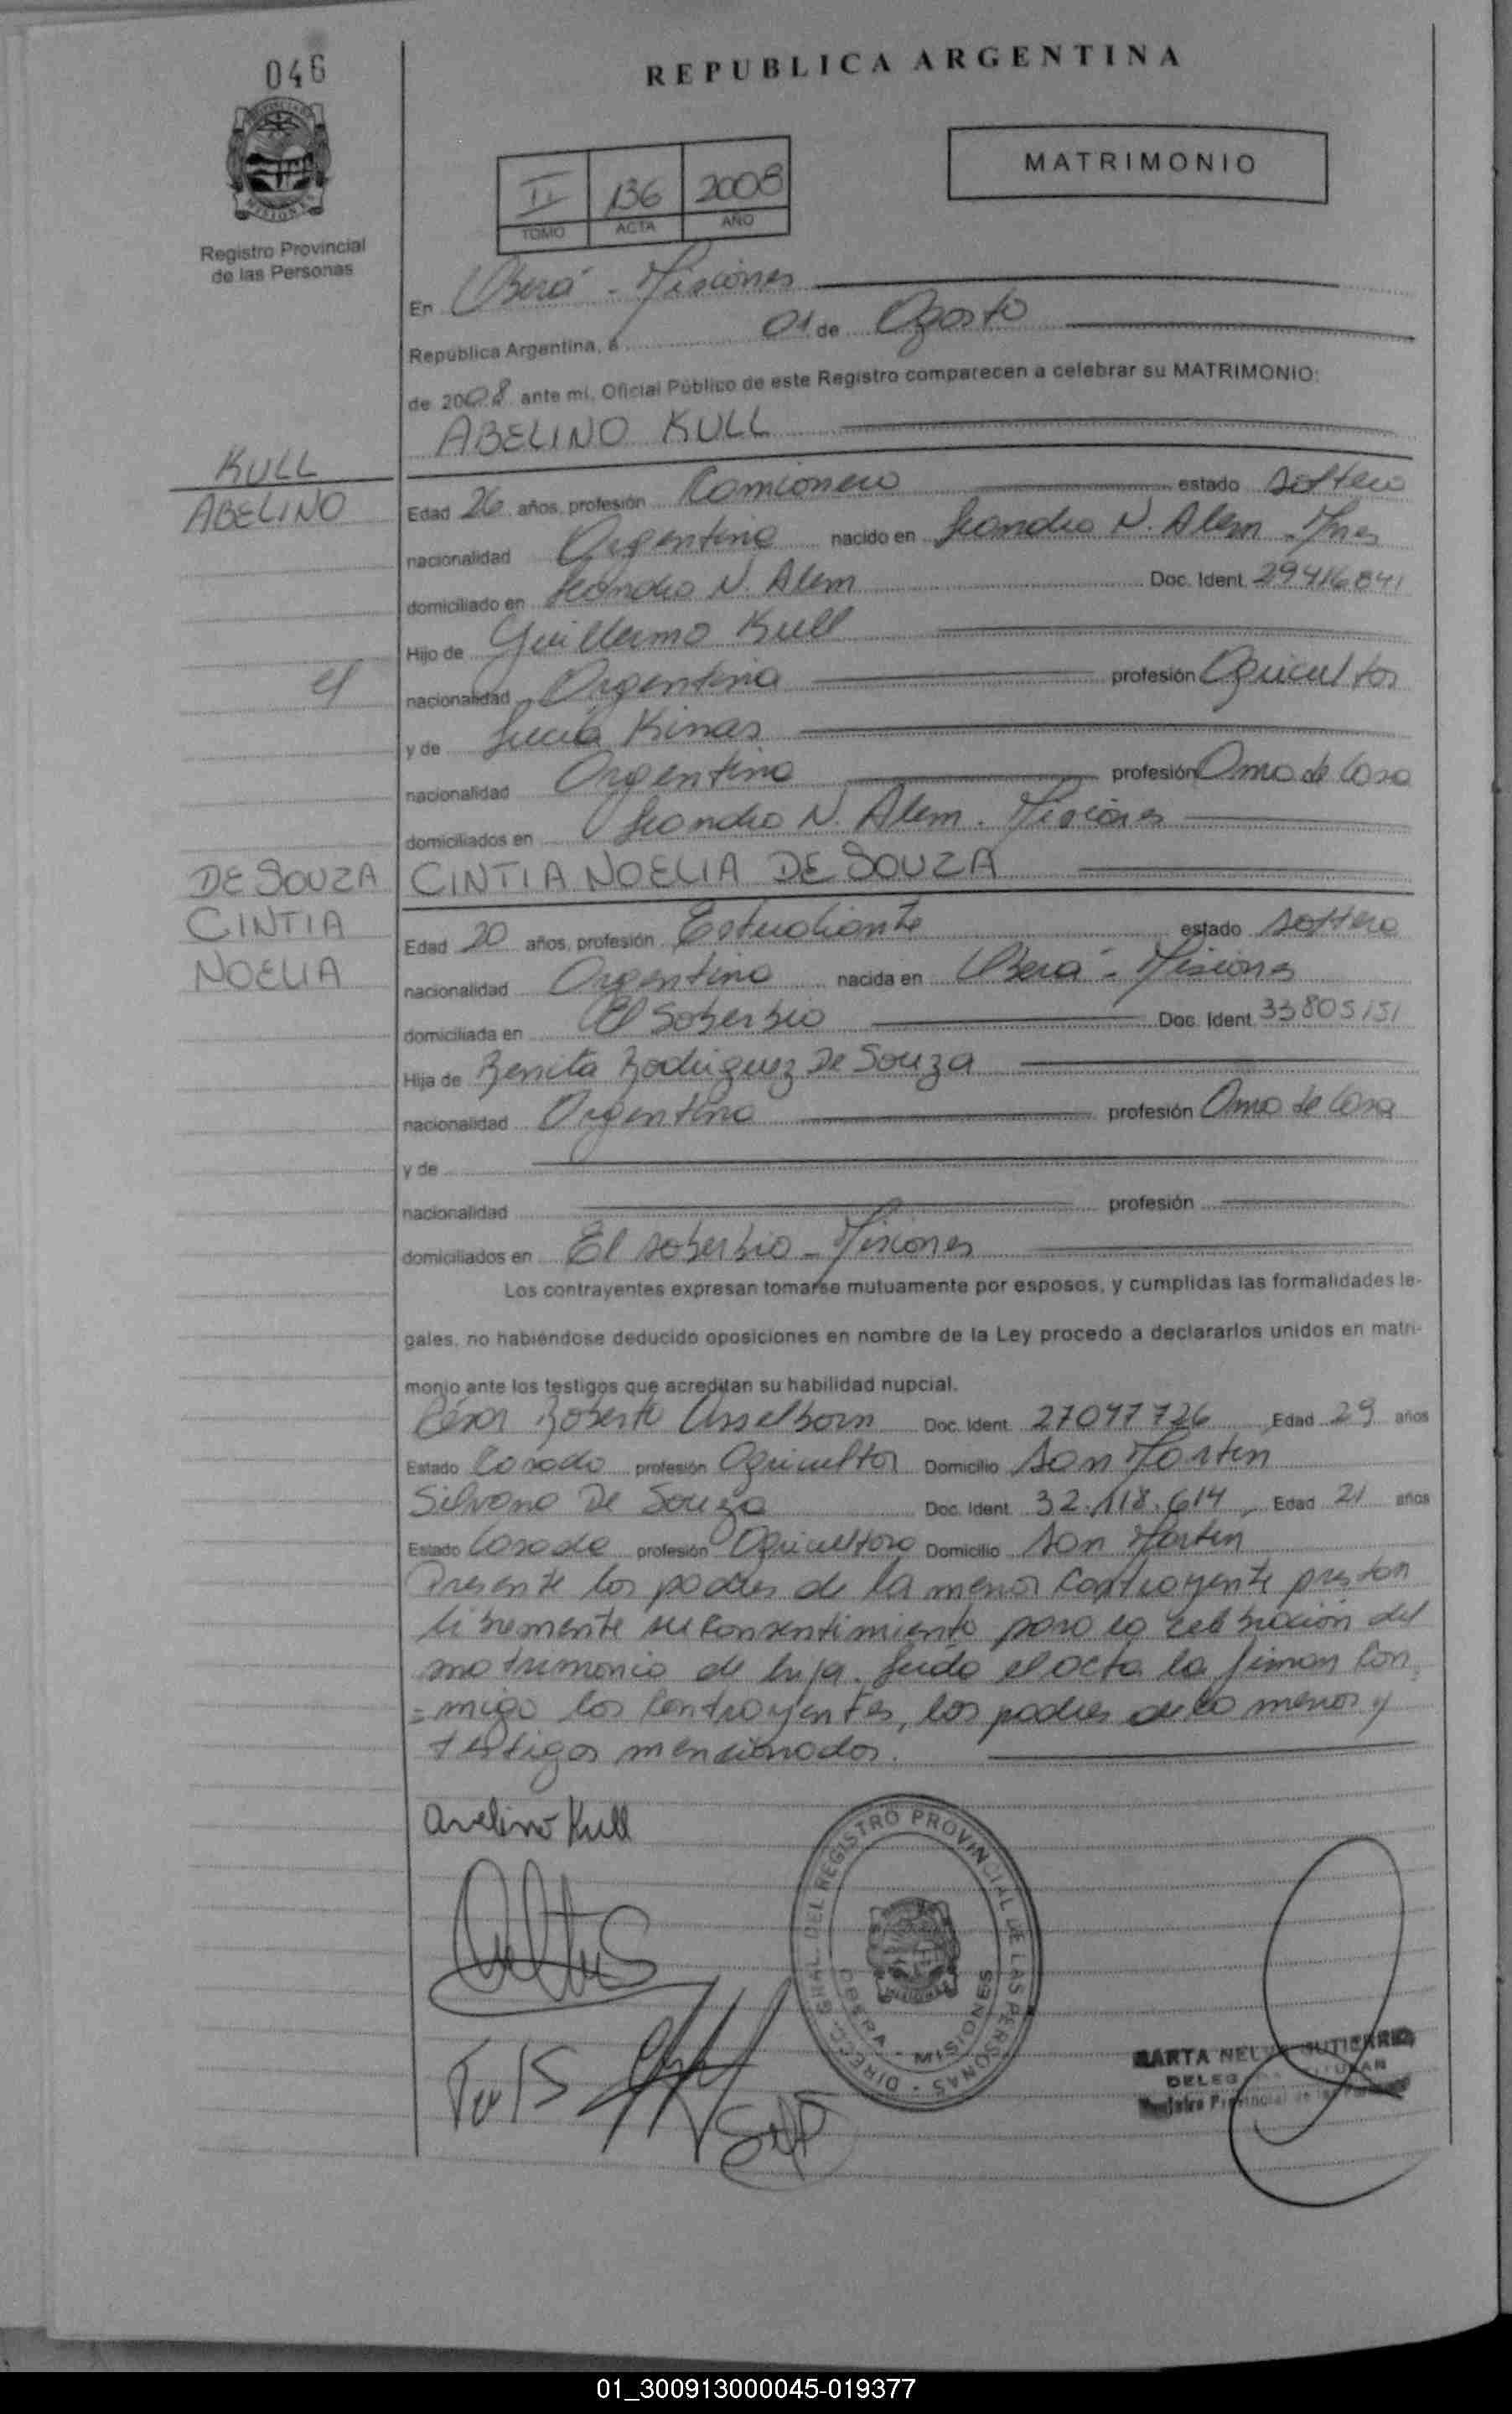 046
REPUBLICA ARGENTINA
MATRIMONIO
II 136 2008
TOMO ACTA AÑO
Registro Provincial
de las Personas
En Oberá - Misiones
República Argentina, a 01 de Agosto
de 2008 ante mi, Oficial Público de este Registro comparecen a celebrar su MATRIMONIO:
ABELINO KULL
KULL
ABELINO
Edad 26 años, profesión Camionero estado soltero
nacionalidad Argentina nacido en Leandro N. Alem - Mnes
domiciliado en Leandro N. Alem Doc. Ident. 29416841
Hijo de Guillermo Kull
y
nacionalidad Argentina profesión Agricultor
y de Lucía Kinas
nacionalidad Argentina profesión Ama de Casa
domiciliados en Leandro N. Alem - Misiones
DE SOUZA
CINTIA
NOELIA
CINTIA NOELIA DE SOUZA
Edad 20 años, profesión Estudiante estado soltera
nacionalidad Argentina nacida en Oberá - Misiones
domiciliada en El Soberbio Doc. Ident. 33805151
Hija de Benita Rodriguez De Souza
nacionalidad Argentina profesión Ama de Casa
y de
nacionalidad profesión
domiciliados en El soberbio - Misiones
Los contrayentes expresan tomarse mutuamente por esposos, y cumplidas las formalidades le-
gales, no habiéndose deducido oposiciones en nombre de la Ley procedo a declararlos unidos en matri-
monio ante los testigos que acreditan su habilidad nupcial.
César Roberto Asselborn Doc. Ident. 27077726 Edad 29 años
Estado Casado profesión Agricultor Domicilio San Martin
Silvana De Souza Doc. Ident. 32.118.614 Edad 21 años
Estado Casada profesión Agricultora Domicilio San Martin
Presente los padres de la menor contrayente prestan
libremente su consentimiento para la celebración del
matrimonio de hija. Leida el acta la firman con
=migo los contrayentes, los padres de la menor y
testigos mencionados.
Avelino Kull
DIRECC. GRAL. DEL REGISTRO PROVINCIAL DE LAS PERSONAS
OBERA - MISIONES
MARTA GUTIERREZ
Registro Provincial de las Personas
01_300913000045-019377